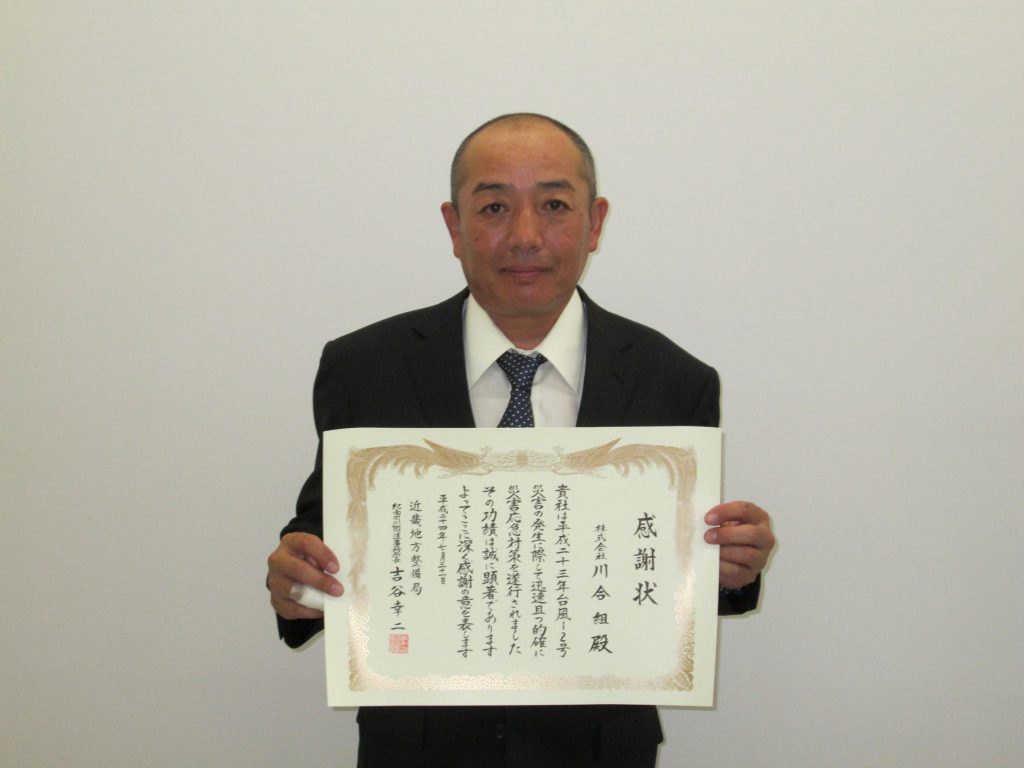 感謝状
株式会社 川合組 殿
貴社は平成二十三年台風12号
災害の発生に際して迅速且つ的確に
災害応急対策を遂行されました
その功績は誠に顕著であります
よってここに深く感謝の意を表します
平成二十四年七月三十一日
近畿地方整備局
紀南河川国道事務所長 吉谷幸二